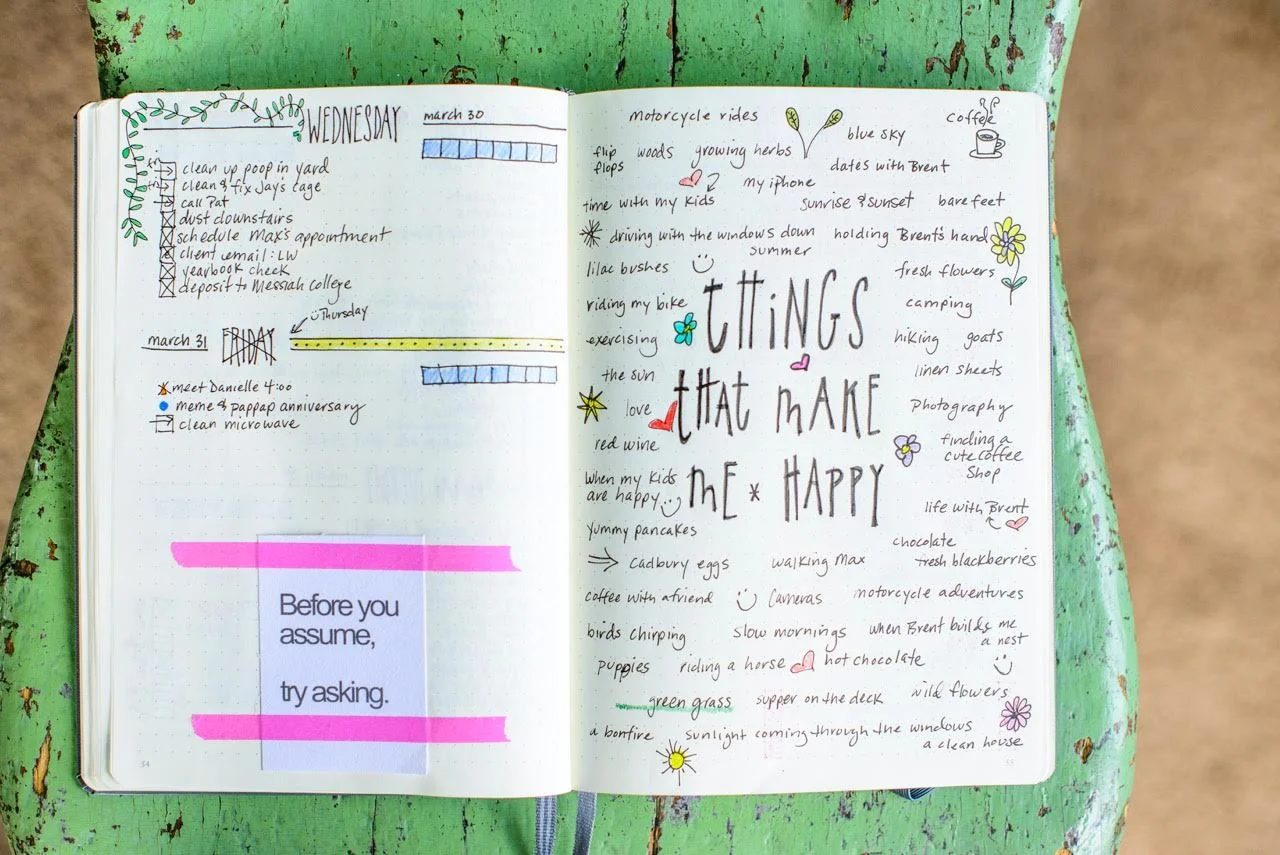 WEDNESDAY
march 30
clean up poop in yard
clean & fix Jay's cage
call Pat
dust downstairs
schedule Max's appointment
client email: LW
yearbook check
deposit to Messiah college
Thursday
march 31
FRIDAY
meet Danielle 4:00
meme & pappap anniversary
clean microwave
Before you
assume,
try asking.
34
motorcycle rides
coffee
blue sky
flip
flops
woods
growing herbs
dates with Brent
my iphone
time with my kids
sunrise & sunset
bare feet
driving with the windows down
summer
holding Brent's hand
lilac bushes
fresh flowers
riding my bike
camping
exercising
hiking
goats
the sun
linen sheets
love
Photography
red wine
finding a
cute coffee
shop
When my kids
are happy
THiNGS
THAT MAKE
ME * HAPPY
life with Brent
yummy pancakes
chocolate
cadbury eggs
walking Max
fresh blackberries
coffee with a friend
Cameras
motorcycle adventures
birds chirping
slow mornings
when Brent builds me
a nest
puppies
riding a horse
hot chocolate
green grass
supper on the deck
wild flowers
a bonfire
sunlight coming through the windows
a clean house
55